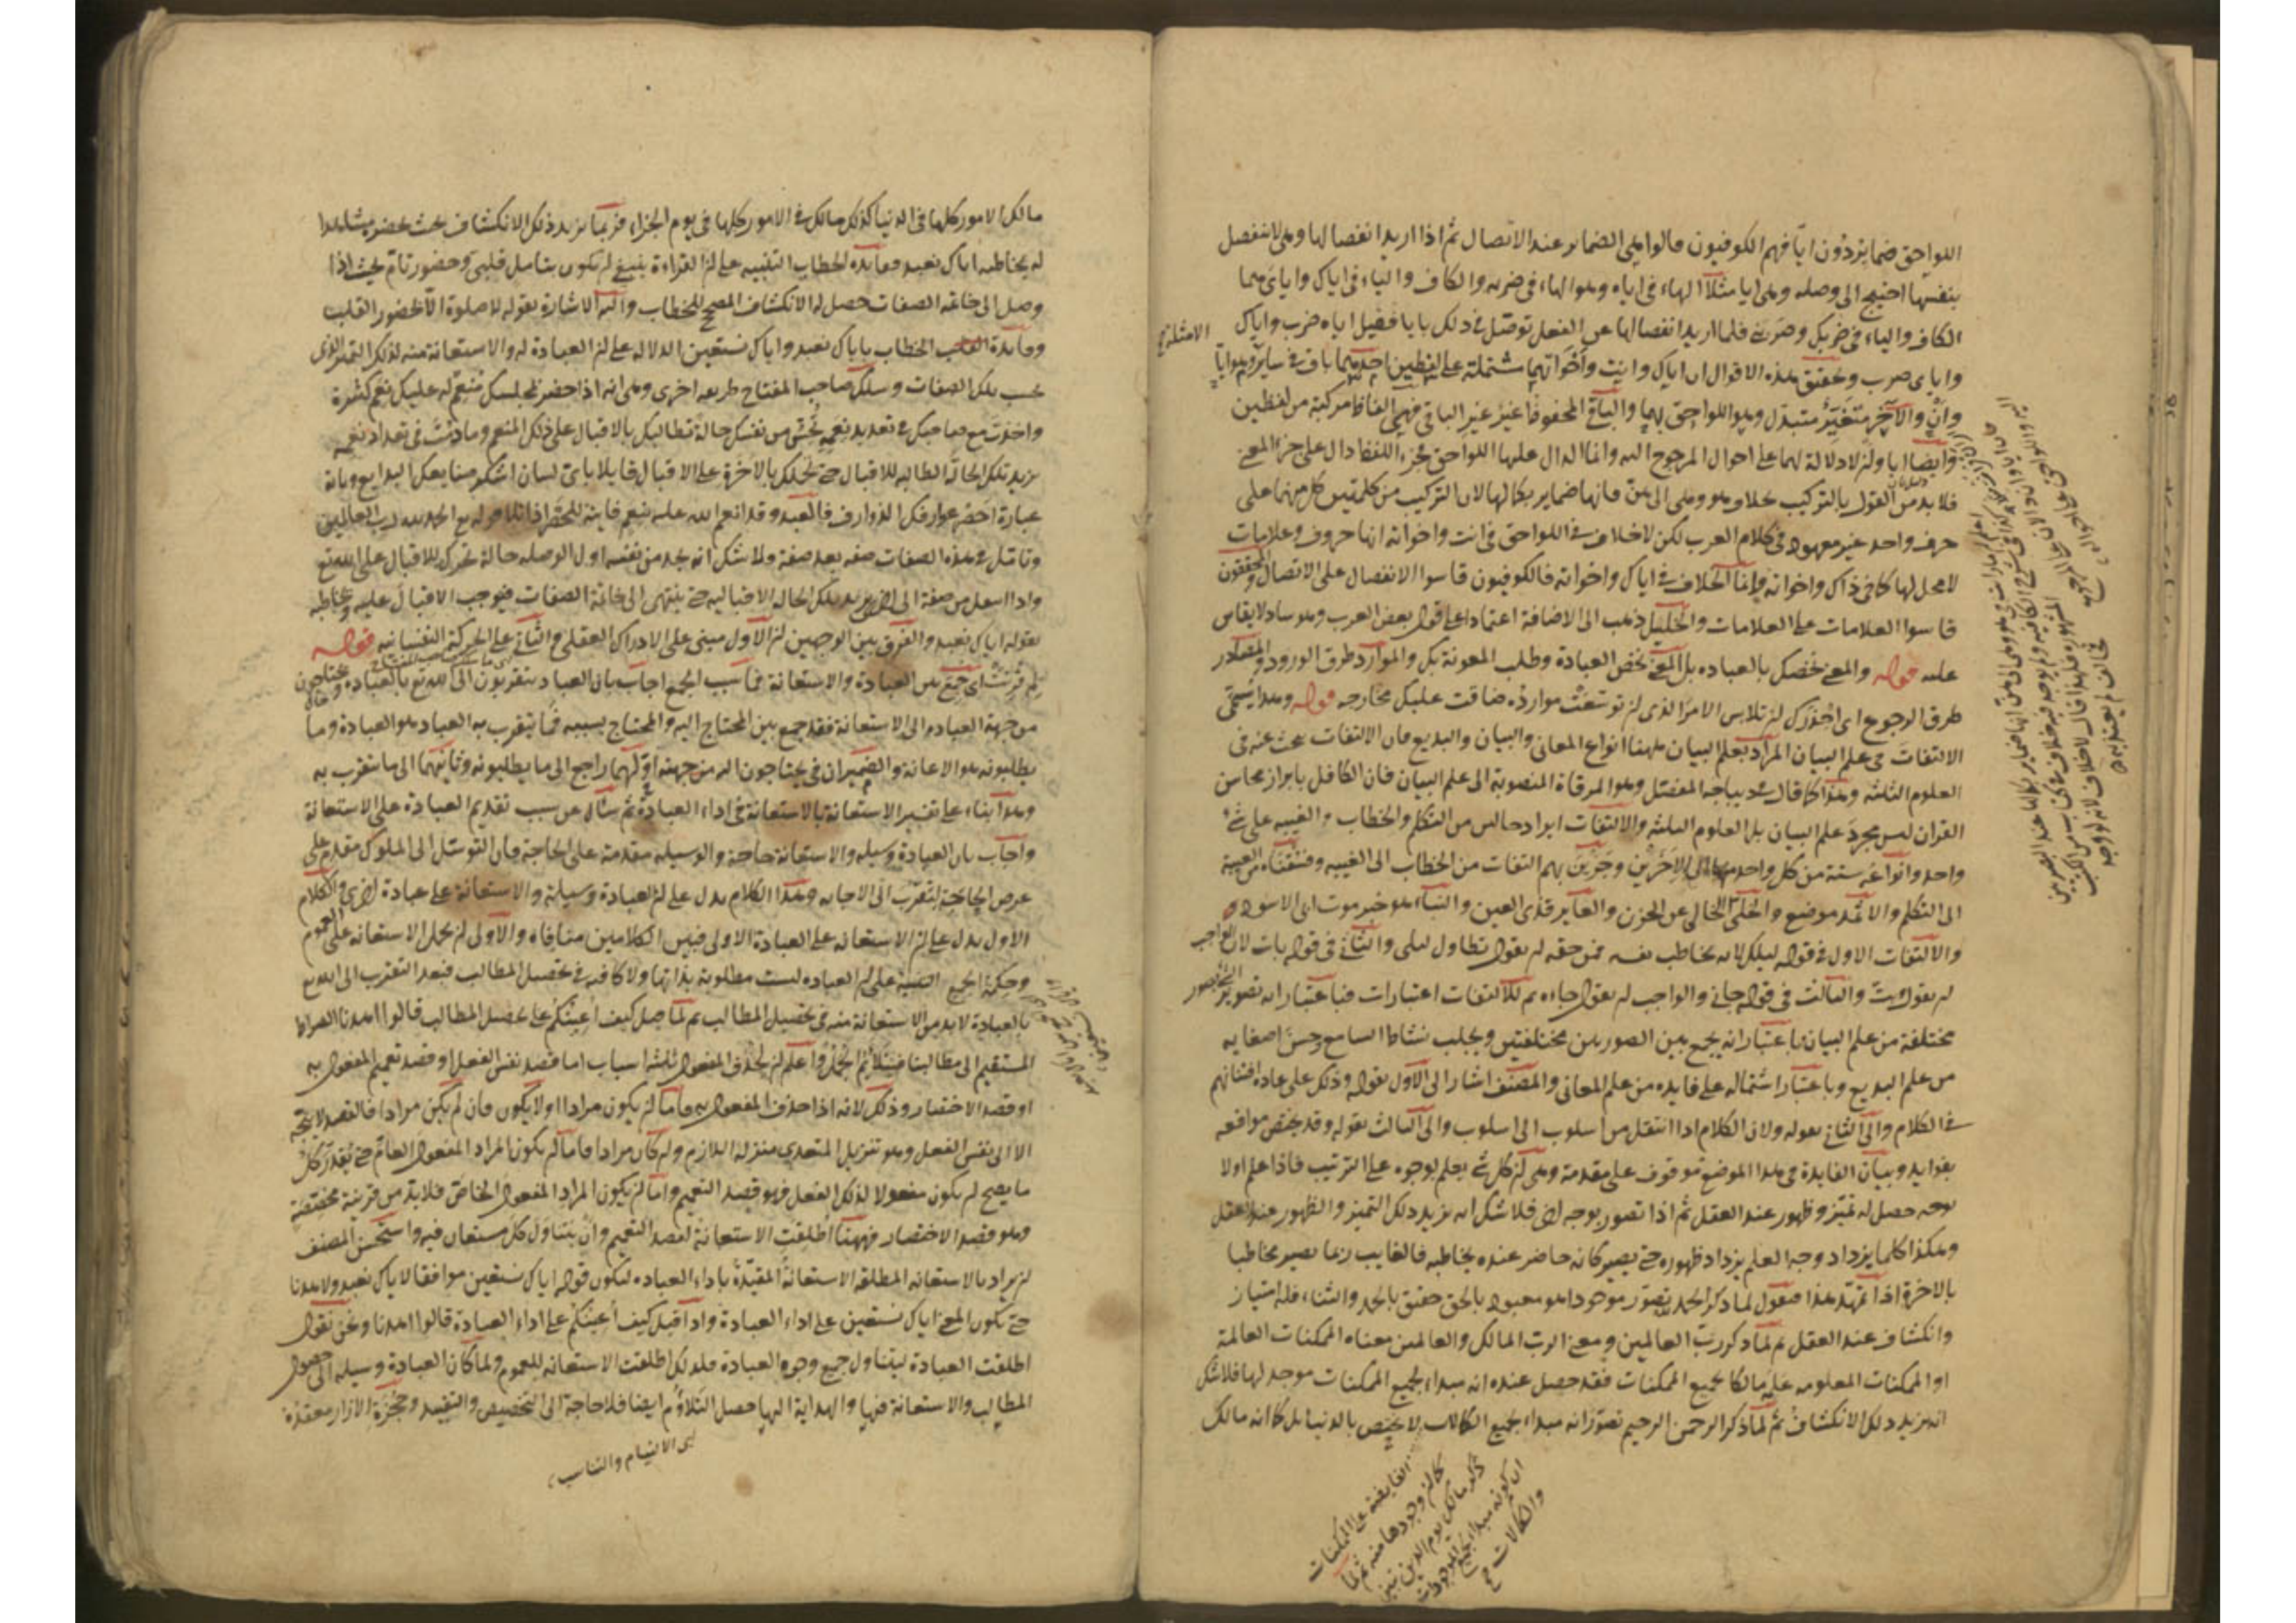 اللواحق ضمايز دون ايا فهم الكوفيون قالوا هي الضماير عند الاتصال ثم اذا اريد انفصالها وهي لا تنفصل
بنفسها احتيج الى وصلة وهي ايا مثلا الهاء في اياه وهو الهاء في ضربه والكاف والياء في اياك واياي هما
الكاف والياء في ضربك وضربني فلما اريد انفصالها عن الفعل توصل في ذلك بايا فقيل اياه ضرب واياك
واياي ضرب وتحقيق هذه الاقوال ان اياك وانت واخواتهما مشتملة على لفظين احدهما باق في ساير وهو ايا
وان والآخر متغير متبدل وهو اللواحق بهما والباقي المحفوظ غير غير الباقي فهي الفاظ مركبة من لفظين
وايضا ايا وان لا دلالة لهما على احوال المرجوع اليه وانما الدال عليها اللواحق فجزء اللفظ دال على جزء المعنى
فلا بد من القول بالتركيب بخلاف هو وهي الى هن فانها ضماير بكمالها لان التركيب من كلمتين كل منهما على
حرف واحد غير معهود في كلام العرب لكن لا خلاف في اللواحق في انت واخواته انها حروف وعلامات
لا محل لها كما في ذاك واخواته وانما الخلاف في اياك واخواته فالكوفيون قاسوا الانفصال على الاتصال والمحققون
قاسوا العلامات على العلامات والخليل ذهب الى الاضافة اعتمادا على قول بعض العرب وهو شاذ لا يقاس
عليه قوله والمعنى نخصك بالعبادة بل المعنى نخص العبادة وطلب المعونة بك والموارد طرق الورود والمصادر
طرق الرجوع اي احذرك ان تلابس الامر الذي ان توسعت موارده ضاقت عليك مخارجه قوله وهذا يسمى
الالتفات في علم البيان المراد بعلم البيان ههنا انواع المعاني والبيان والبديع فان الالتفات يبحث عنه في
العلوم الثلثة وهذا كما قال في ديباجة المفصل وهو المرقاة المنصوبة الى علم البيان فان الكافل بابراز محاسن
القران ليس مجرد علم البيان بل العلوم الثلثة والالتفات ايراد حاليين من التكلم والخطاب والغيبة على شئ
واحد وانواعه ستة من كل واحد منها الى الاخرين وجرين بهم التفات من الخطاب الى الغيبة وفسقناه من الغيبة
الى التكلم والاثمد موضع والخلي الخالي عن الحزن والعاير قذى العين والنبأ هو خبر موت ابي الاسود
والالتفات الاول في قوله ليلك لانه يخاطب نفسه فمن حقه ان يقول تطاول ليلي والثاني في قوله بات لان الواجب
ان يقول بت والثالث في قوله جاءني والواجب ان يقول جاءه ثم للالتفات اعتبارات فباعتبار انه تصوير
مختلفة من علم البيان باعتبار انه يجمع بين الصورتين مختلفتين ويجلب نشاط السامع وحسن اصغايه
من علم البديع وباعتبار اشتماله على فايدة من علم المعاني والمصنف اشار الى الاول بقوله وذلك على عادة افتنانهم
في الكلام والى الثاني بقوله ولان الكلام اذا انتقل من اسلوب الى اسلوب والى الثالث بقوله وقد يختص مواقعه
بفوايد وبيان الفايدة في هذا الموضع موقوف على مقدمة وهي ان كل شئ يعلم بوجوه على الترتيب فاذا علم اولا
بوجه حصل له تميز وظهور عند العقل ثم اذا تصور بوجه اخر فلا شك انه يزيد ذلك التميز والظهور عند العقل
وهكذا كلما يزداد وجه العلم يزداد ظهوره حتى يصير كانه حاضر عنده يخاطبه فالغايب ربما يصير مخاطبا
بالاخرة اذا تمهد هذا فنقول لما ذكر الحمد لله تصور موجودا هو معبود بالحق حقيق بالحمد والثناء فله امتياز
وانكشاف عند العقل ثم لما ذكر رب العالمين ومعنى الرب المالك والعالمين معناه الممكنات العالمة
او الممكنات المعلومة علم مالكا لجميع الممكنات فقد حصل عنده انه مبداء لجميع الممكنات موجد لها فلا شك
انه يزيد ذلك الانكشاف ثم لما ذكر الرحمن الرحيم تصور انه مبداء لجميع الكمالات لا يختص بالدنيا بل كما انه مالك
الفايضة على الممكنات
كما ان وجودها منه ثم لما
ذكر مالك يوم الدين تبين
ان كونه مبداء لجميع الموجودات
والكمالات
مالك الامور كلها في الدنيا كذلك مالك في الامور كلها في يوم الجزاء فربما يزيد ذلك الانكشاف بحيث يحضر مشاهدا
له يخاطبه اياك نعبد وفايدة الخطاب التنبيه على ان القراءة ينبغي ان تكون بتامل قلبي وحضور تام بحيث اذا
وصل الى خاتمة الصفات حصل له الانكشاف المصحح للخطاب واليه الاشارة بقوله لا صلوة الا بحضور القلب
وفايدة الخطاب باياك نعبد واياك نستعين الدلالة على ان العبادة له والاستعانة منه لذلك التميز الذي
بحسب تلك الصفات وسلك صاحب المفتاح طريقه اخرى وهي انه اذا حضر مجلسك منعم له عليك نعم كثيرة
واخذت مع صاحبك في تعديد نعمه تحس من نفسك حالة تطالبك بالاقبال على ذلك المنعم وما دمت في تعداد نعمه
يزيد تلك الحالة الطالبة للاقبال حتى تحملك بالاخرة على الاقبال قايلا باي لسان اشكر صنايعك البدايع وباية
عبارة احصر عوارفك الذوارف فالعبد وقد انعم الله عليه بنعم فايتة للحصر اذا تلا قوله تع الحمد لله رب العالمين
وتامل في هذه الصفات صفة بعد صفة ولا شك انه يجد من نفسه اول الوصلة حالة تحركه للاقبال على الله تع
واذا انتقل من صفة الى اخرى يزيد تلك الحالة الاقبالية حتى ينتهي الى خاتمة الصفات فيوجب الاقبال عليه ويخاطبه
بقوله اياك نعبد والفرق بين الوجهين ان الاول مبني على الادراك العقلي والثاني على الحركة النفسانية قوله
لم قرنت اي جمع بين العبادة والاستعانة فما سبب الجمع اجاب بان العباد يتقربون الى الله تع بالعبادة ويحتاجون
من جهة العبادة الى الاستعانة فقد جمع بين المحتاج اليه والمحتاج بسببه فما يتقرب به العباد هو العبادة وما
يطلبونه هو الاعانة والضميران في يحتاجون اليه من جهته اولهما راجع الى ما يطلبونه وثانيهما الى ما يتقرب به
وهذا بناء على تفسير الاستعانة بالاستعانة في اداء العبادة ثم سال عن سبب تقديم العبادة على الاستعانة
واجاب بان العبادة وسيلة والاستعانة حاجة والوسيلة مقدمة على الحاجة فان التوسل الى الملوك مقدم على
عرض الحاجة لتقرب الى الاجابة وهذا الكلام يدل على ان العبادة وسيلة والاستعانة على عبادة اخرى والكلام
الاول يدل على ان الاستعانة على العبادة الاولى فبين الكلامين منافاة والاولى ان تحمل الاستعانة على العموم
وحكمة الجمع التنبيه على ان العبادة ليست مطلوبة بذاتها ولا كافية في تحصيل المطالب فبعد التقرب الى الله تع
بالعبادة لا بد من الاستعانة منه في تحصيل المطالب ثم لما قيل كيف اعينكم على تحصيل المطالب قالوا اهدنا الصراط
المستقيم الى مطالبنا فيتلائم الجمل واعلم ان لحذف المفعول ثلثة اسباب اما قصد نفس الفعل او قصد تعميم المفعول به
او قصد الاختصار وذلك لانه اذا حذف المفعول به فاما ان يكون مرادا او لا يكون فان لم يكن مرادا فالقصد لا يتجه
الا الى نفس الفعل وهو تنزيل المتعدي منزلة اللازم وان كان مرادا فاما ان يكون المراد المفعول العام حتى يقدر كل
ما يصح ان يكون مفعولا لذلك الفعل فهو قصد التعميم واما ان يكون المراد المفعول الخاص فلا بد من قرينة مخصصة
وهو قصد الاختصار فههنا اطلقت الاستعانة لقصد التعميم وان يتناول كل مستعان فيه واستحسن المصنف
ان يراد بالاستعانة المطلقة الاستعانة المقيدة باداء العبادة ليكون قوله اياك نستعين موافقا لاياك نعبد ولاهدنا
حتى يكون المعنى اياك نستعين على اداء العبادة واذا قيل كيف اعينكم على اداء العبادة قالوا اهدنا ونحن نقول
اطلقت العبادة ليتناول جميع وجوه العبادة فلذلك اطلقت الاستعانة للعموم ولما كان العبادة وسيلة الى حصول
المطالب والاستعانة فيها والهداية اليها حصل التلاؤم ايضا فلا حاجة الى التخصيص والتقييد وحجزة الازار معقده
اي الالتيام والتناسب